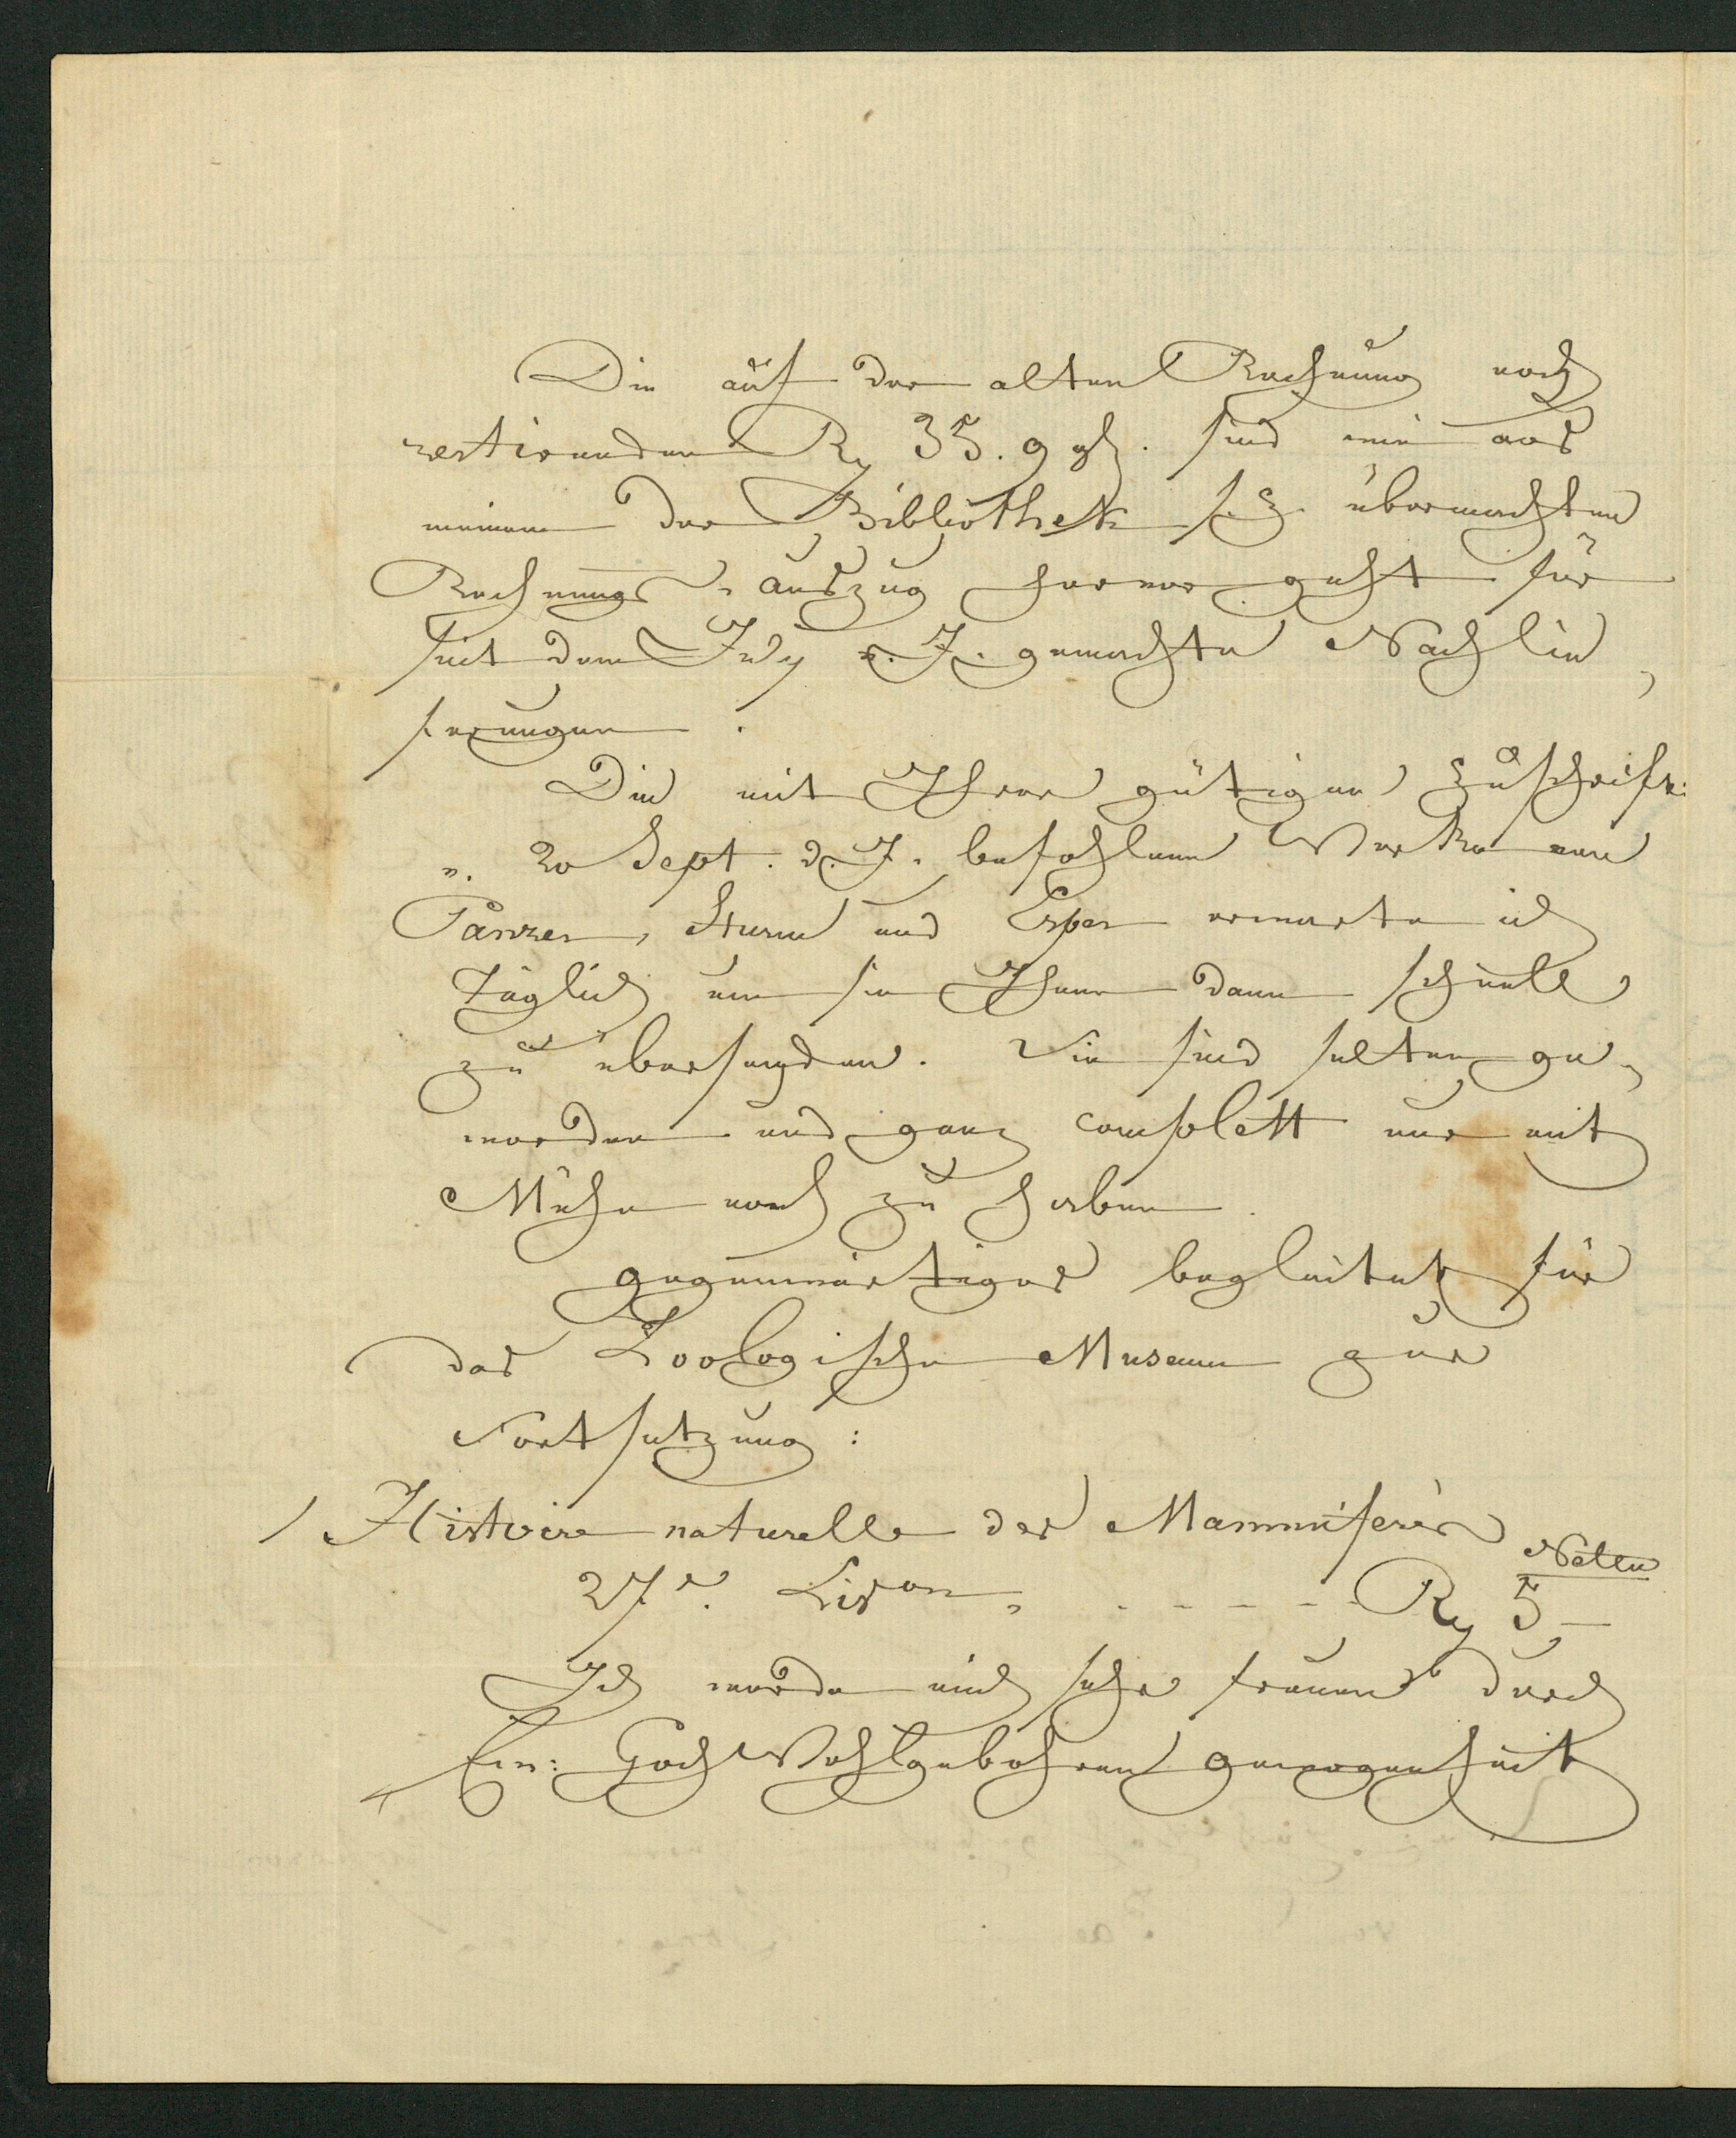 Die auf der alten Rechnung noch
restirenden Rh 35. 9 gl. sind wie aus
meinem der Bibliothek s. Z. übermachten
Rechnungs-Auszug hervor geht für
seit dem July v. J. gemachte Nachlie,
ferungen.
Die mit Ihrer gütigen Zuschrift
v. 20 Sept. d. J. befohlenen Werke von
Panzer, Sturm und Esper erwarte ich
täglich um sie Ihnen dann schnell
zu übersenden. Sie sind selten ge,
worden und ganz complett nur mit
Mühe noch zu haben.
Gegenwärtiges begleitet für
das Zoologische Museum zur
Fortsetzung:
1 Histoire naturelle des Mammiferès
Netto
27e. Livon, - - - - - Rh 5 —
Ich werde mich sehr freuen durch
Ew: HochWohlgebohren Gewogenheit